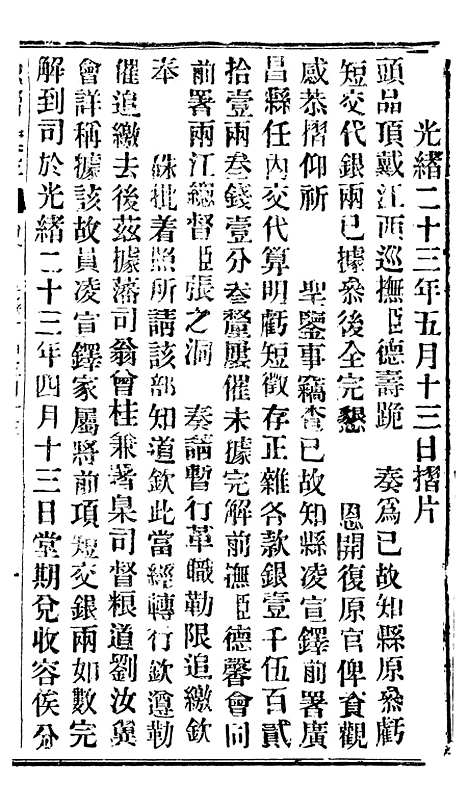 光緒二十三年五月十三日摺片
頭品頂戴江西巡撫臣德壽跪 奏爲已故知縣原叅虧
短交代銀兩已據叅後全完懇 恩開復原官俾資觀
感恭摺仰祈 聖鑒事竊查已故知縣凌宣鐸前署廣
昌縣任內交代算明虧短徵存正雜各款銀壹千伍百貳
拾壹兩叁錢壹分叁釐屢催未據完解前撫臣德馨會同
前署兩江總督臣張之洞 奏請暫行革職勒限追繳欽
奉 硃批着照所請該部知道欽此當經轉行欽遵勒
催追繳去後茲據藩司翁曾桂兼署臬司督粮道劉汝翼
會詳稱據該故員凌宣鐸家屬將前項短交銀兩如數完
解到司於光緒二十三年四月十三日堂期兌收容俟分